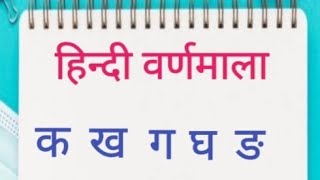 हिन्दी वर्णमाला
क ख ग घ ङ